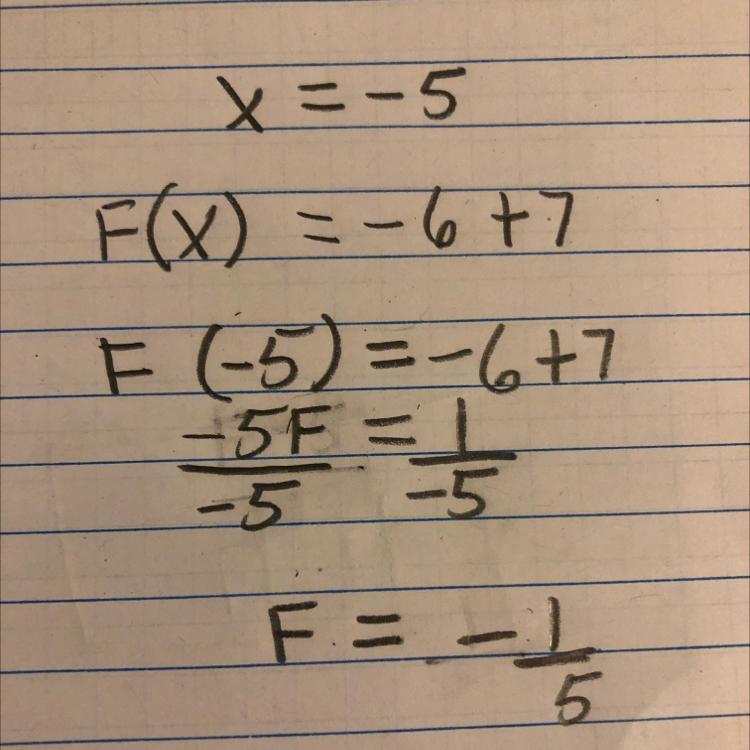 x = -5
F(x) = -6 + 7
F (-5) = -6 + 7
-5F = 1
-5 -5
F = - 1
5